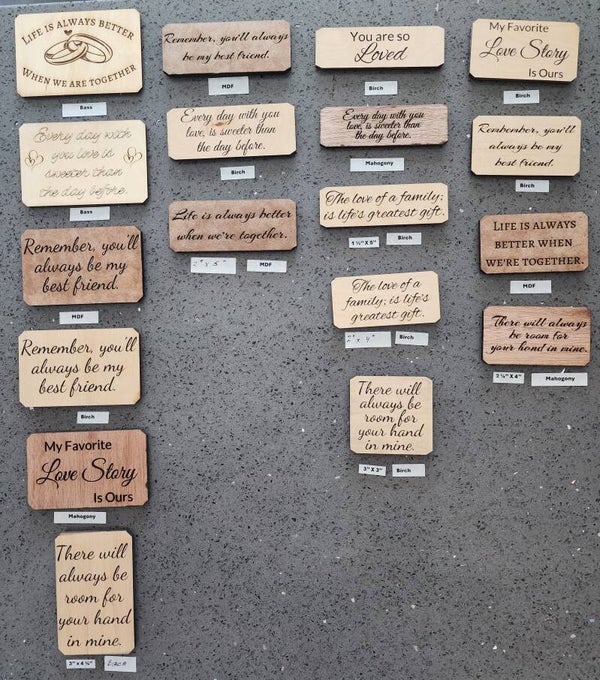 LIFE IS ALWAYS BETTER
WHEN WE ARE TOGETHER
Bass
Every day with
you love is
sweeter than
the day before.
Bass
Remember, you'll
always be my
best friend.
MDF
Remember, you'll
always be my
best friend.
Birch
My Favorite
Love Story
Is Ours
Mahogony
There will
always be
room for
your hand
in mine.
Remember, you'll always
be my best friend.
MDF
Every day with you
love, is sweeter than
the day before.
Birch
Life is always better
when we're together.
MDF
You are so
Loved
Birch
Every day with you
love, is sweeter than
the day before.
Mahogony
The love of a family;
is life's greatest gift.
1 ½" X 5"
Birch
The love of a
family; is life's
greatest gift.
Birch
There will
always be
room for
your hand
in mine.
3" X 3"
Birch
My Favorite
Love Story
Is Ours
Birch
Remember, you'll
always be my
best friend.
Birch
LIFE IS ALWAYS
BETTER WHEN
WE'RE TOGETHER.
MDF
There will always
be room for
your hand in mine.
Mahogony